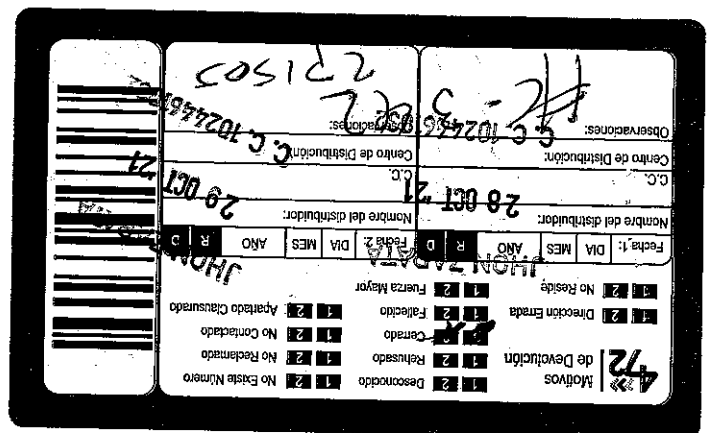 472
Motivos de Devolución
1 2 Desconocido
1 2 Rehusado
1 2 Cerrado
1 2 Fallecido
1 2 Fuerza Mayor
1 2 No Existe Número
1 2 No Reclamado
1 2 No Contactado
1 2 Apartado Clausurado
1 2 Dirección Errada
1 2 No Reside
Fecha 1: DIA MES AÑO R D
JHON ZAPATA
Nombre del distribuidor:
28 OCT '21
C.C.
Centro de Distribución:
Observaciones:
C.C. 102446
Fecha 2: DIA MES AÑO R D
JHON
Nombre del distribuidor:
29 OCT '21
C.C.
Centro de Distribución:
C.C. 102446
Observaciones:
2 PISOS